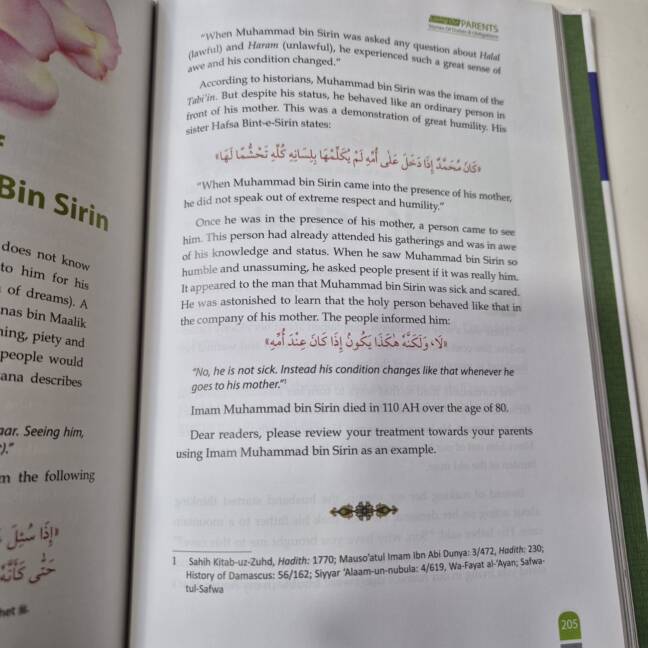 Bin Sirin
does not know
to him for his
of dreams). A
nas bin Maalik
ning, piety and
people would
ana describes
aar. Seeing him,
)."
m the following
«إِذَا سُئِلَ
حَتَّى كَأَنَّهُ
PARENTS
Stories Of Duties & Obligations
"When Muhammad bin Sirin was asked any question about Halal
(lawful) and Haram (unlawful), he experienced such a great sense of
awe and his condition changed."
According to historians, Muhammad bin Sirin was the imam of the
Tabi'in. But despite his status, he behaved like an ordinary person in
front of his mother. This was a demonstration of great humility. His
sister Hafsa Bint-e-Sirin states:
«كَانَ مُحَمَّدٌ إِذَا دَخَلَ عَلَى أُمِّهِ لَمْ يُكَلِّمْهَا بِلِسَانِهِ كُلِّهِ تَخَشُّعًا لَهَا»
"When Muhammad bin Sirin came into the presence of his mother,
he did not speak out of extreme respect and humility."
Once he was in the presence of his mother, a person came to see
him. This person had already attended his gatherings and was in awe
of his knowledge and status. When he saw Muhammad bin Sirin so
humble and unassuming, he asked people present if it was really him.
It appeared to the man that Muhammad bin Sirin was sick and scared.
He was astonished to learn that the holy person behaved like that in
the company of his mother. The people informed him:
«لَا، وَلَكِنَّهُ هَكَذَا يَكُونُ إِذَا كَانَ عِنْدَ أُمِّهِ»
"No, he is not sick. Instead his condition changes like that whenever he
goes to his mother."1
Imam Muhammad bin Sirin died in 110 AH over the age of 80.
Dear readers, please review your treatment towards your parents
using Imam Muhammad bin Sirin as an example.
1 Sahih Kitab-uz-Zuhd, Hadith: 1770; Mauso'atul Imam Ibn Abi Dunya: 3/472, Hadith: 230;
History of Damascus: 56/162; Siyyar 'Alaam-un-nubula: 4/619, Wa-Fayat al-'Ayan; Safwa-
tul-Safwa
205